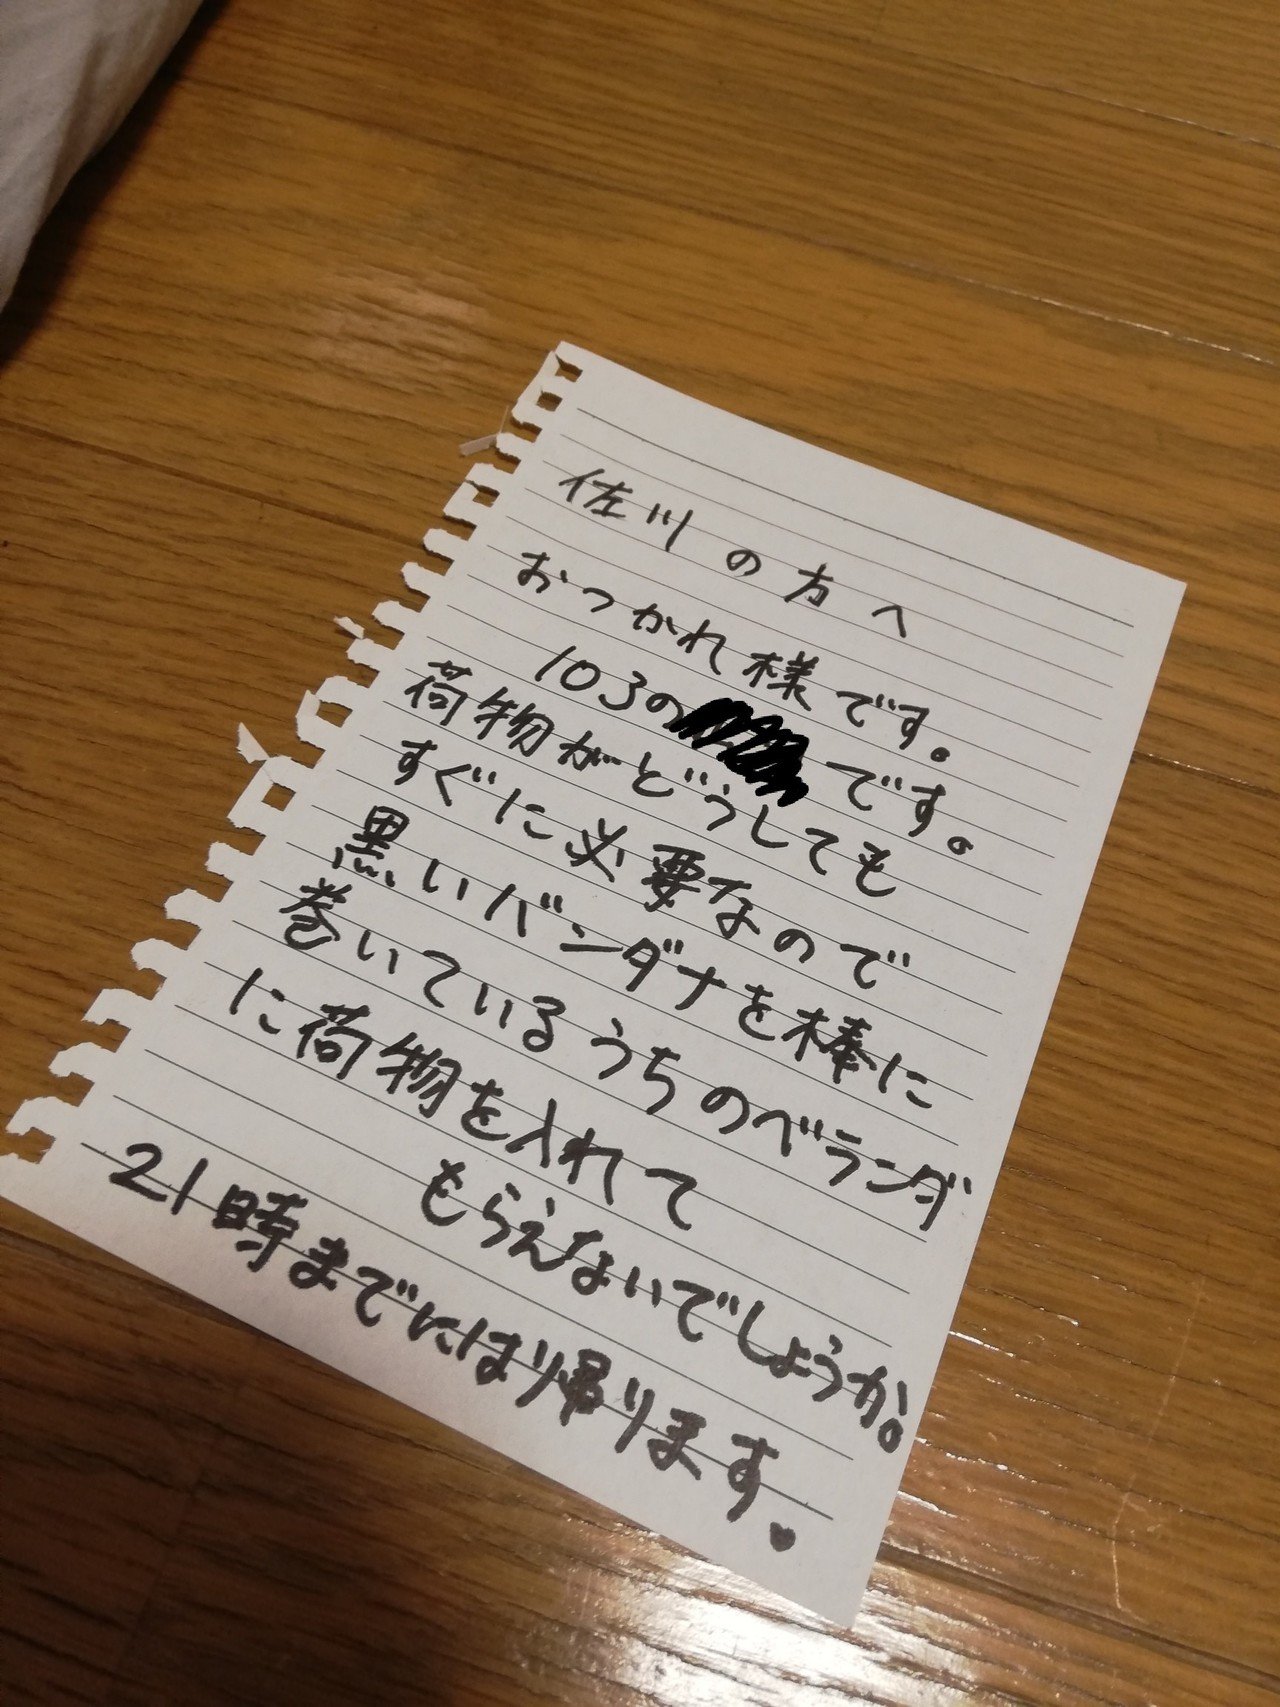 佐川の方へ
おつかれ様です。
103の です。
荷物がどうしても
すぐに必要なので
黒いバンダナを棒に
巻いているうちのベランダ
に荷物を入れて
もらえないでしょうか。
21時までには帰ります。